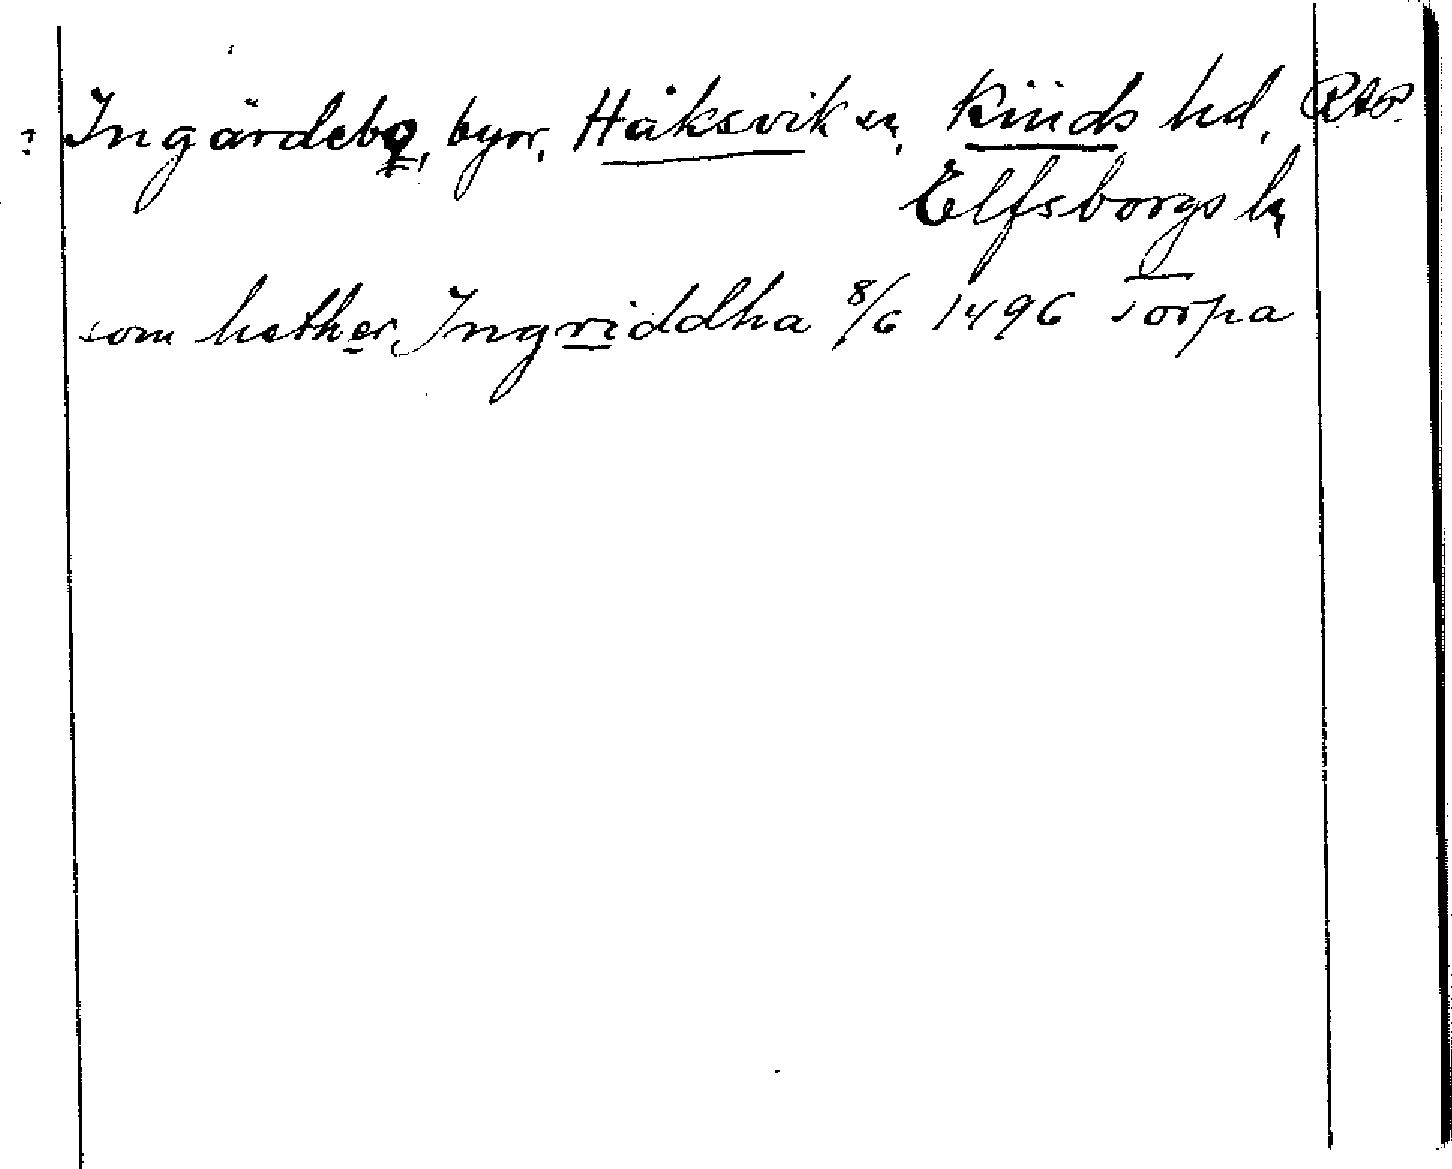 : Ingärdebo, byn, Håksvik sn, Kinds hd, RAP
Elfsborgs ln
som hether Ingriddha 8/6 1496 Torpa